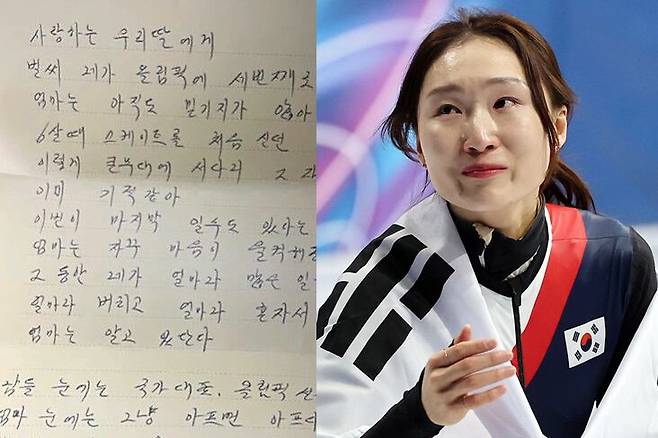 사랑하는 우리딸에게
벌써 네가 올림픽에 세번째로
엄마는 아직도 믿기지가 않아
6살때 스케이트를 처음 신던
이렇게 큰무대에 서다니 그 자
이미 기적같아
이번이 마지막 일수도 있다는
엄마는 자꾸 마음이 울컥해
그 동안 네가 얼마나 많은
얼마나 버리고 얼마나 혼자서
엄마는 알고 있단다
람들 눈에는 국가대표, 올림픽 선
엄마 눈에는 그냥 아프면 아프다